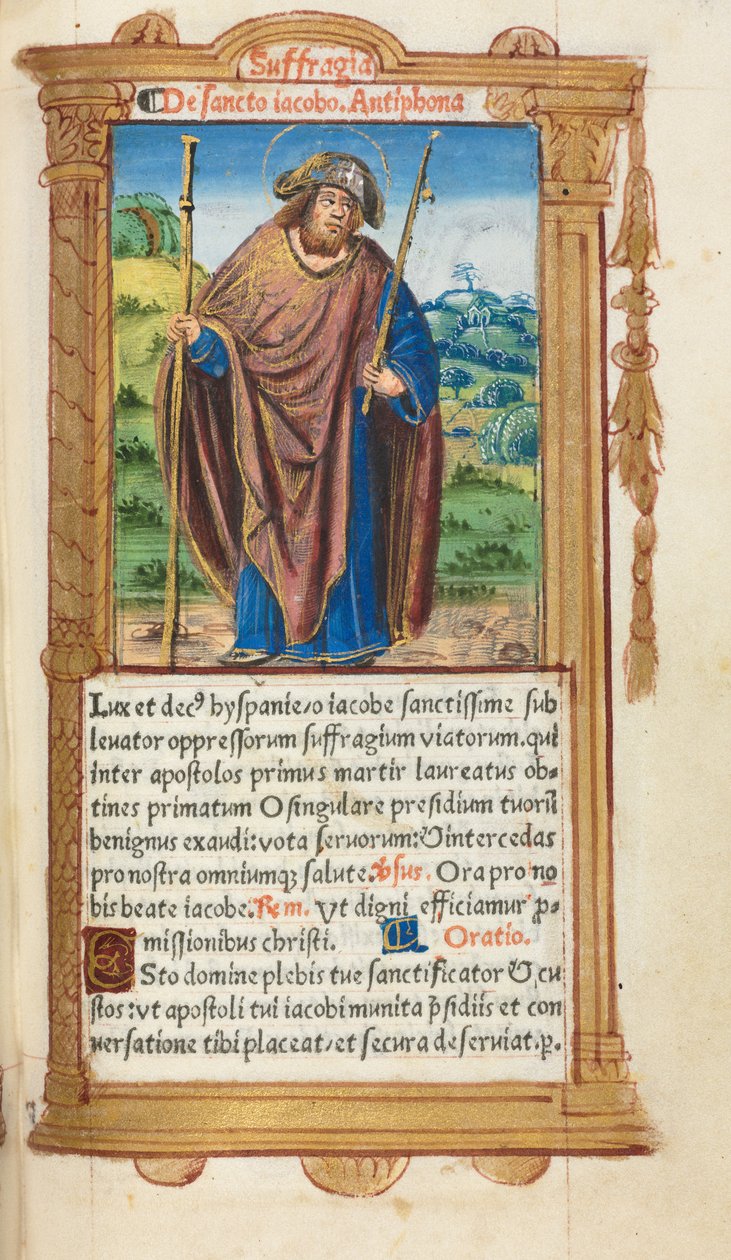 Suffragia
De sancto iacobo. Antiphona
Lux et decꝰ hyſpanie/o iacobe ſanctiſſime ſub
levator oppreſſorum ſuffragium viatorum. qui
inter apoſtolos primus martir laureatus ob⸗
tines primatum O ſingulare preſidium tuorū
benignus exaudi: vota ſervorum: & intercedas
pro noſtra omniumqꝫ ſalute. Ꝟſus. Ora pro no
bis beate iacobe. Rem. Vt digni efficiamur ꝓ⸗
miſſionibus chriſti. Oratio.
ESto domine plebis tue ſanctificator & cu
ſtos: vt apoſtoli tui iacobi munita p̄ſidiis et con
verſatione tibi placeat/et ſecura deſerviat. ꝑ.